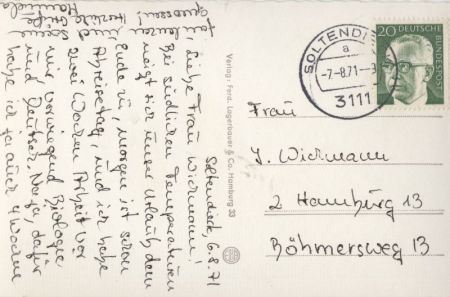 Soltendieck, 6.8.71
Ja, liebe Frau Wichmann!
Bei südlichen Temperaturen
neigt sich unser Urlaub dem
Ende zu, morgen ist schon
Abreisetag, und ich habe
zwei Wochen Arbeit vor
mir, vorwiegend Biologie
und Deutsch. Na ja, dafür
habe ich ja auch 4 Wochen
genossen!
Herzliche
Grüße
Verlag: Ferd. Lagerbauer & Co. Hamburg 33
SOLTENDIECK
a
-7.-8.71-
3111
20 DEUTSCHE BUNDESPOST
Frau
J. Wichmann
2 Hamburg 13
Böhmersweg 13